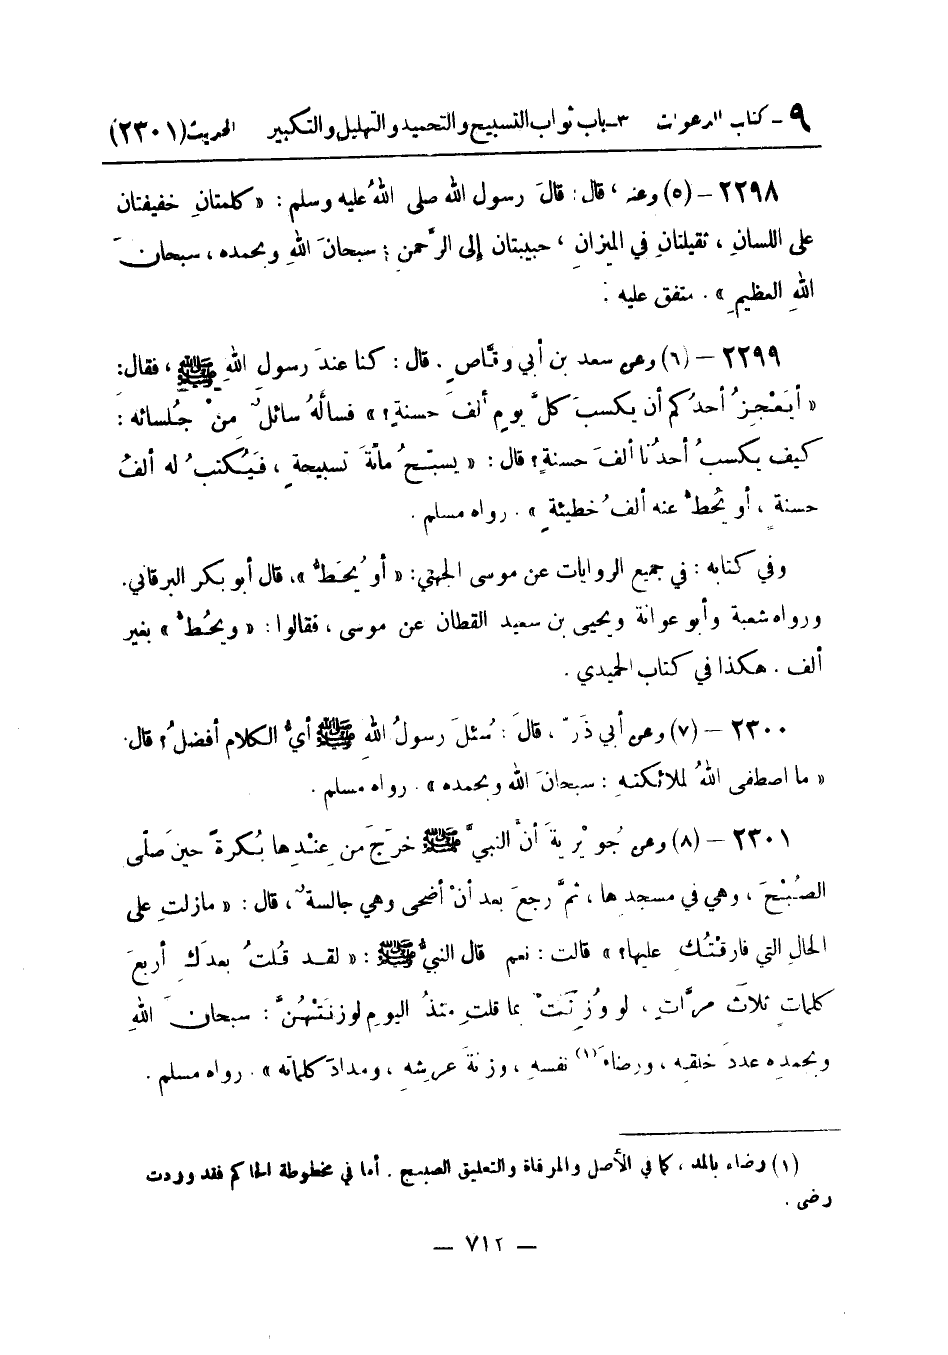 ٩ - كتاب الدعوات ٣-باب ثواب التسبيح والتحميد والتهليل والتكبير الحديث (٢٣٠١)
٢٢٩٨ – (٥) وعنه ، قال : قالَ رسول الله صلى اللهُ عليه وسلم : « كلمتانِ خفيفتان
على اللسانِ ، ثقيلتانِ في الميزانِ ، حبيبتان إلى الرَّحمنِ : سبحانَ اللهِ وبحمده ، سبحانَ
اللهِ العظيمِ » . متفق عليه .
٢٢٩٩ – (٦) وعن سعد بن أبي وقَّاصٍ . قال : كنا عندَ رسولِ اللهِ ﷺ ، فقال :
« أيَعْجِزُ أحدُكم أن يكسبَ كلَّ يومٍ ألفَ حسنةٍ ؟ » فسألَهُ سائلٌ مِنْ جُلسائه :
كيف يكسبُ أحدُنا ألفَ حسنةٍ ؟ قال : « يسبّحُ مائةَ تسبيحةٍ ، فيُكتبُ له ألفُ
حسنةٍ ، أو يُحطُّ عنه ألفُ خطيئةٍ » . رواه مسلم .
وفي كتابه : في جميع الروايات عن موسى الجهني : « أو يُحَطُّ » ، قال أبو بكر البرقاني .
ورواه شعبة وأبو عوانة ويحيى بن سعيد القطان عن موسى ، فقالوا : « ويحُطُّ » بغير
ألف . هكذا في كتاب الحميدي .
٢٣٠٠ – (٧) وعن أبي ذَرّ ، قالَ : سُئلَ رسولُ اللهِ ﷺ أيُّ الكلام أفضلُ ؟ قال .
« ما اصطفى اللهُ لملائكتهِ : سبحانَ الله وبحمده » . رواه مسلم .
٢٣٠١ – (٨) وعن جُوَيْريةَ أنَّ النبيَّ ﷺ خرَجَ من عِنْدِها بُكرةً حينَ صلّى
الصُبْحَ ، وهي في مسجدِها ، ثمَّ رجعَ بعد أنْ أضحى وهي جالسةٌ ، قال : « مازلتِ على
الحالِ التي فارقْتُكِ عليها ؟ » قالت : نعم قال النبيُّ ﷺ : « لقد قُلتُ بعدَكِ أربعَ
كلماتٍ ثلاثَ مرَّاتٍ ، لو وُزِنَتْ بما قلتِ منذُ اليومِ لوزَنَتْهُنَّ : سبحانَ اللهِ
وبحمدِه عددَ خلقِه ، ورضاءَ (١) نفسهِ ، وزنةَ عرشِه ، ومدادَ كلماتهِ » . رواه مسلم .
(١) رضاء بالمد ، كما في الأصل والمرقاة والتعليق الصبيح . أما في مخطوطة الحاكم فقد وردت
رضى .
— ٧١٢ —